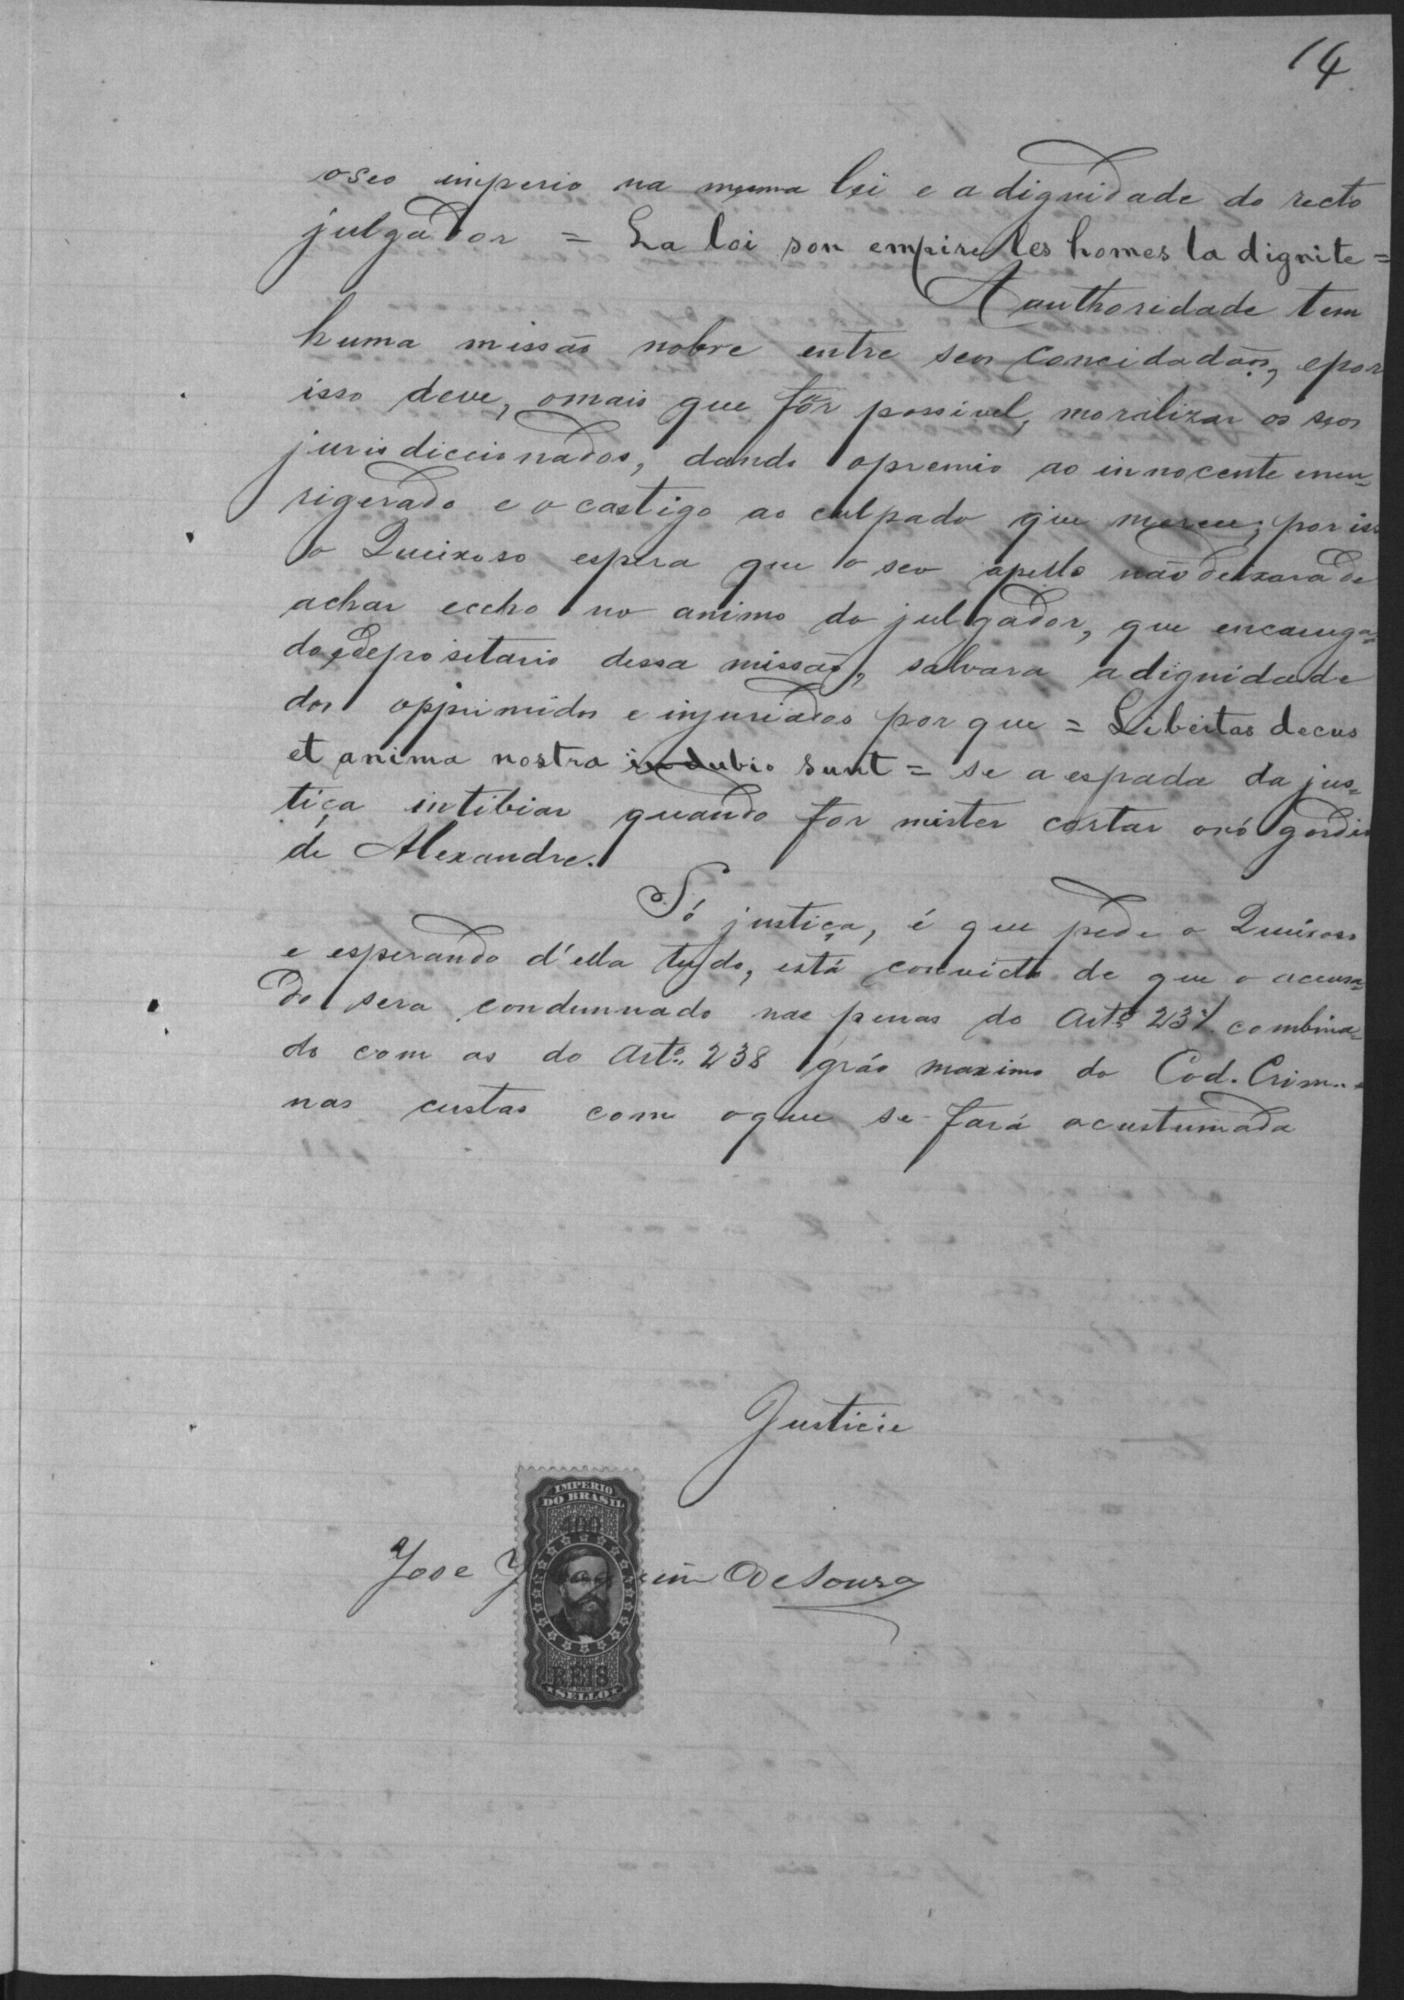 14
oseo imperio na mesma lei e a dignidade do recto
julgador = La loi son empire les homes la dignite =
A authoridade tem
huma missão nobre entre seos concidadãos, epor
isso deve, omais que fôr possivel, moralizar os seos
jurisdiccionados, dando opremio ao innocente emen=
rigerado e o castigo ao culpado que merece; por isso
o Queixoso espera que o seo apello não deixara de
achar eccho no animo do julgador, que encarrega=
do, edepositario dessa missão, salvara adignidade
dos opprimidos e injuriados por que = Libertas decus
et anima nostra in dubio sunt = se a espada da jus=
tiça intibiar quando for mister cortar onó gordio
de Alexandre.
Só justiça, é que pede o Queixoso
e esperando d'ella tudo, está convicto de que o accusa=
do sera condemnado nas penas do Artº 237 combina=
do com as do Artº 238 gráo maximo do Cod. Crim. e
nas custas com oque se fará acustumada
Justicie
IMPERIO
DO BRASIL
Jose Joaquim de Souza
REIS
SELLO